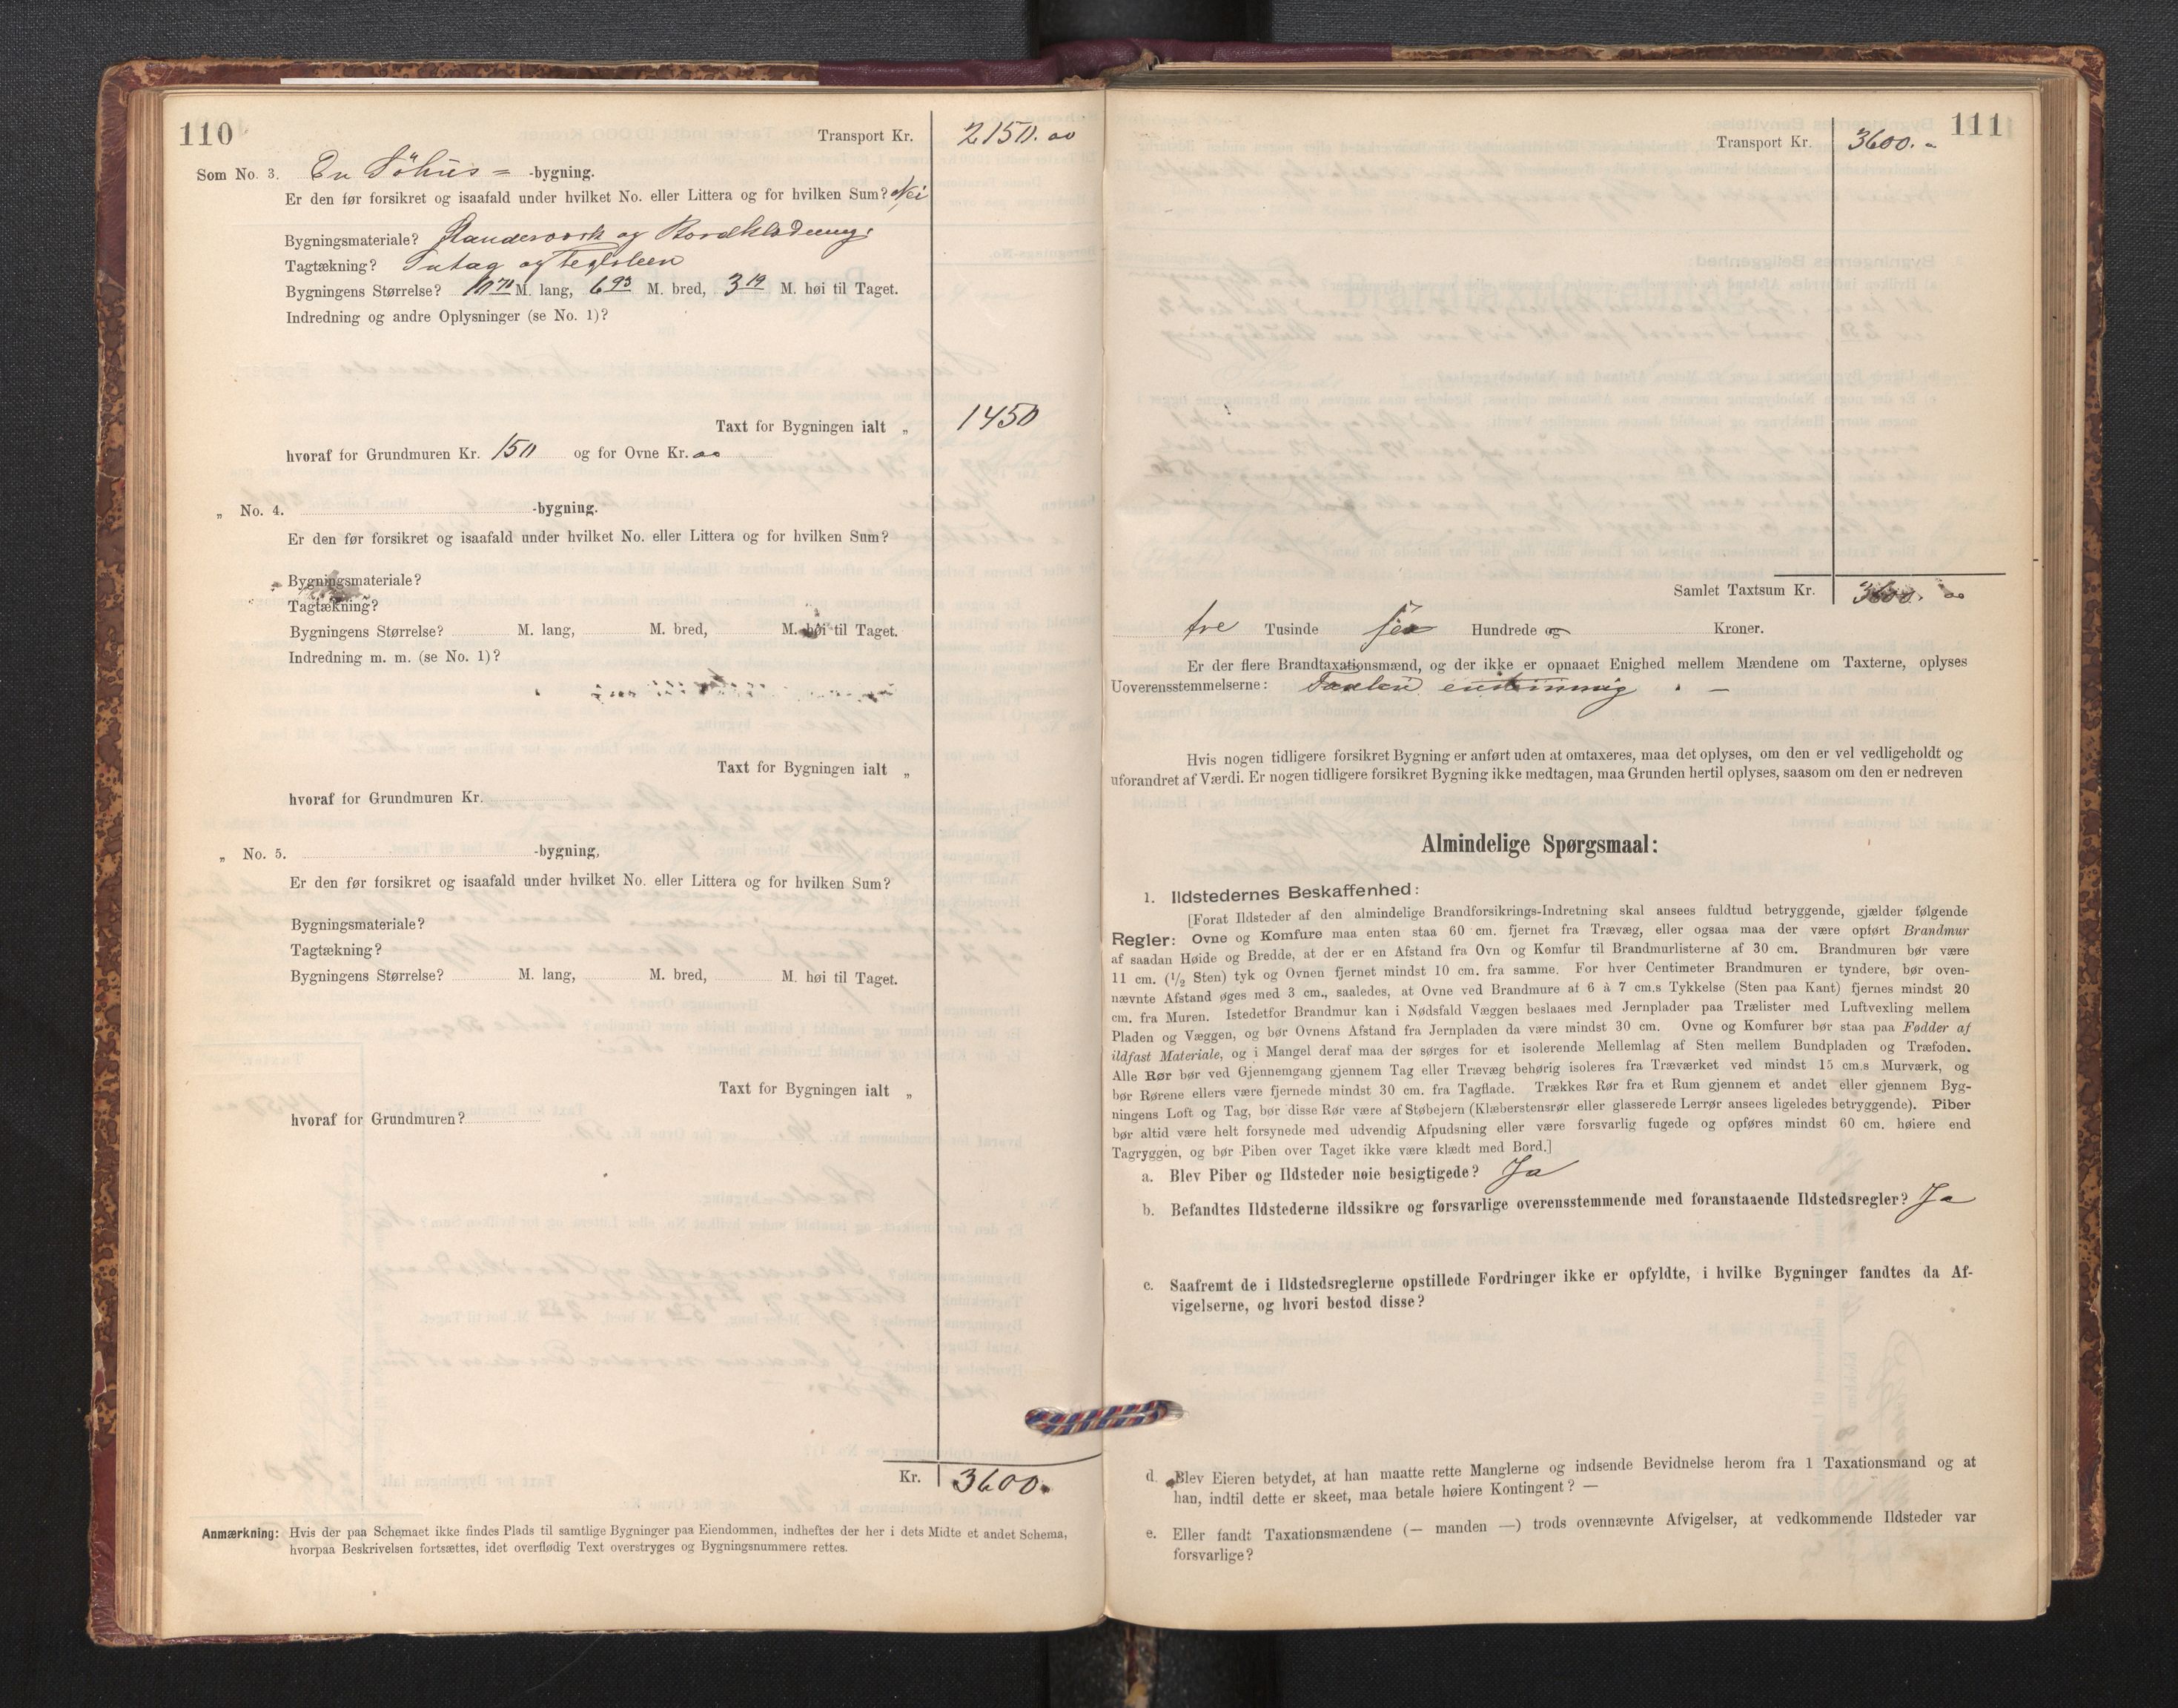 110
Transport Kr. 2150. 00
Som No. 3. En Söhus= -bygning.
Er den før forsikret og isaafald under hvilket No. eller Littera og for hvilken Sum? Nei
Bygningsmateriale? Standervark og Bordklædning.
Tagtækning? Sutag og Teglsteen
Bygningens Størrelse? 10 70 M. lang, 6 93 M. bred, 3 19 M. høi til Taget.
Indredning og andre Oplysninger (se No. 1)?
Taxt for Bygningen ialt „ 1450
hvoraf for Grundmuren Kr. 150 og for Ovne Kr. 00
„ No. 4. -bygning.
Er den før forsikret og isaafald under hvilket No. eller Littera og for hvilken Sum?
Bygningsmateriale?
Tagtækning?
Bygningens Størrelse? M. lang, M. bred, M. høi til Taget.
Indredning m. m. (se No. 1)?
Taxt for Bygningen ialt „
hvoraf for Grundmuren Kr.
„ No. 5. -bygning,
Er den før forsikret og isaafald under hvilket No. eller Littera og for hvilken Sum?
Bygningsmateriale?
Tagtækning?
Bygningens Størrelse? M. lang, M. bred, M. høi til Taget.
Taxt for Bygningen ialt „
hvoraf for Grundmuren?
Kr. 3600.
Anmærkning: Hvis der paa Schemaet ikke findes Plads til samtlige Bygninger paa Eiendommen, indheftes der her i dets Midte et andet Schema,
hvorpaa Beskrivelsen fortsættes, idet overflødig Text overstryges og Bygningsnummere rettes.
111
Transport Kr. 3600. "
Samlet Taxtsum Kr. 3600. 00
tre Tusinde sex Hundrede og Kroner.
Er der flere Brandtaxationsmænd, og der ikke er opnaaet Enighed mellem Mændene om Taxterne, oplyses
Uoverensstemmelserne: Taxten enstimmig. —
Hvis nogen tidligere forsikret Bygning er anført uden at omtaxeres, maa det oplyses, om den er vel vedligeholdt og
uforandret af Værdi. Er nogen tidligere forsikret Bygning ikke medtagen, maa Grunden hertil oplyses, saasom om den er nedreven
Almindelige Spørgsmaal:
1. Ildstedernes Beskaffenhed:
[Forat Ildsteder af den almindelige Brandforsikrings-Indretning skal ansees fuldtud betryggende, gjælder følgende
Regler: Ovne og Komfure maa enten staa 60 cm. fjernet fra Trævæg, eller ogsaa maa der være opført Brandmur
af saadan Høide og Bredde, at der er en Afstand fra Ovn og Komfur til Brandmurlisterne af 30 cm. Brandmuren bør være
11 cm. (1/2 Sten) tyk og Ovnen fjernet mindst 10 cm. fra samme. For hver Centimeter Brandmuren er tyndere, bør oven-
nævnte Afstand øges med 3 cm., saaledes, at Ovne ved Brandmure af 6 à 7 cm.s Tykkelse (Sten paa Kant) fjernes mindst 20
cm. fra Muren. Istedetfor Brandmur kan i Nødsfald Væggen beslaaes med Jernplader paa Trælister med Luftvexling mellem
Pladen og Væggen, og bør Ovnens Afstand fra Jernpladen da være mindst 30 cm. Ovne og Komfurer bør staa paa Fødder af
ildfast Materiale, og i Mangel deraf maa der sørges for et isolerende Mellemlag af Sten mellem Bundpladen og Træfoden.
Alle Rør bør ved Gjennemgang gjennem Tag eller Trævæg behørig isoleres fra Træværket ved mindst 15 cm.s Murværk, og
bør Rørene ellers være fjernede mindst 30 cm. fra Tagflade. Trækkes Rør fra et Rum gjennem et andet eller gjennem Byg-
ningens Loft og Tag, bør disse Rør være af Støbejern (Klæberstensrør eller glasserede Lerrør ansees ligeledes betryggende). Piber
bør altid være helt forsynede med udvendig Afpudsning eller være forsvarlig fugede og opføres mindst 60 cm. høiere end
Tagryggen, og bør Piben over Taget ikke være klædt med Bord.]
a. Blev Piber og Ildsteder nøie besigtigede? Ja
b. Befandtes Ildstederne ildssikre og forsvarlige overensstemmende med foranstaaende Ildstedsregler? Ja
c. Saafremt de i Ildstedsreglerne opstillede Fordringer ikke er opfyldte, i hvilke Bygninger fandtes da Af-
vigelserne, og hvori bestod disse?
d. Blev Eieren betydet, at han maatte rette Manglerne og indsende Bevidnelse herom fra 1 Taxationsmand og at
han, indtil dette er skeet, maa betale høiere Kontingent? —
e. Eller fandt Taxationsmændene (— manden —) trods ovennævnte Afvigelser, at vedkommende Ildsteder var
forsvarlige?